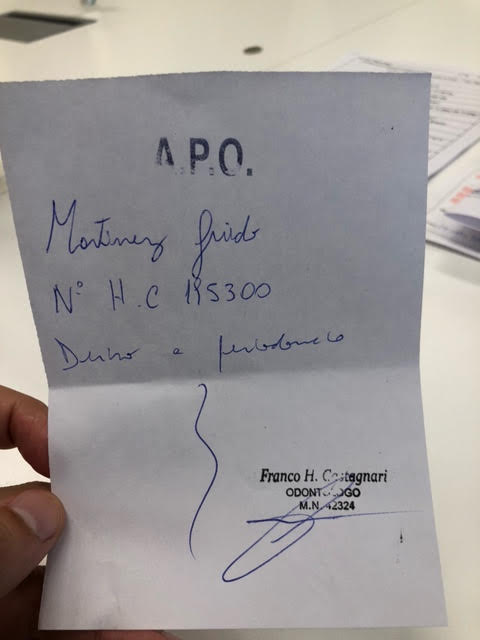 A.P.O.
Martinez Guido
N° H.C 195300
Derivo a periodoncia
Franco H. Castagnari
ODONTOLOGO
M.N. 42324